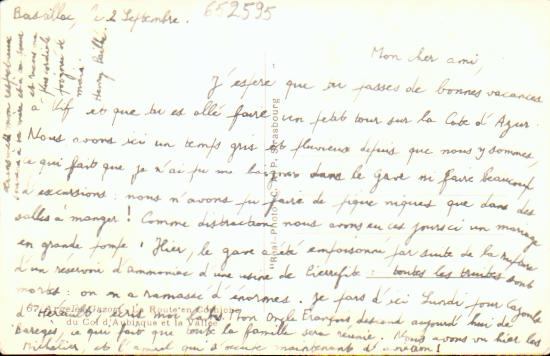 652595
le 2 Septembre.
Mon cher ami,
J'espère que tu passes de bonnes vacances
à Vif et que tu es allé faire un petit tour sur la Côte d'Azur.
Nous avons ici un temps gris et pluvieux depuis que nous y sommes,
ce qui fait que je n'ai pu me baigner dans le Gave ni faire beaucoup
d'excursions : nous n'avons pu faire de pique niques que dans des
salles à manger ! Comme distraction nous avons eu ces jours ci un mariage
en grande pompe ! Hier, le gave a été empoisonné par suite de la rupture
d'un réservoir d'ammoniac d'une usine de Pierrefitte : toutes les truites sont
mortes : on en a ramassé d'énormes. Je pars d'ici Lundi pour
d'Hérault, mon Oncle François descend aujourd'hui de
Barèges, ce qui fait que toute la famille sera réunie. Nous avons vu hier les
et l'amiral qui s'occupe maintenant d'aviation !
mon respectueux
et mon
plus cordial
mais.
Henry
"Real-Photo" C. A. P. Strasbourg
67. Argelès-Gazost. La Route en Corniche
du Col d'Aubisque et la Vallée